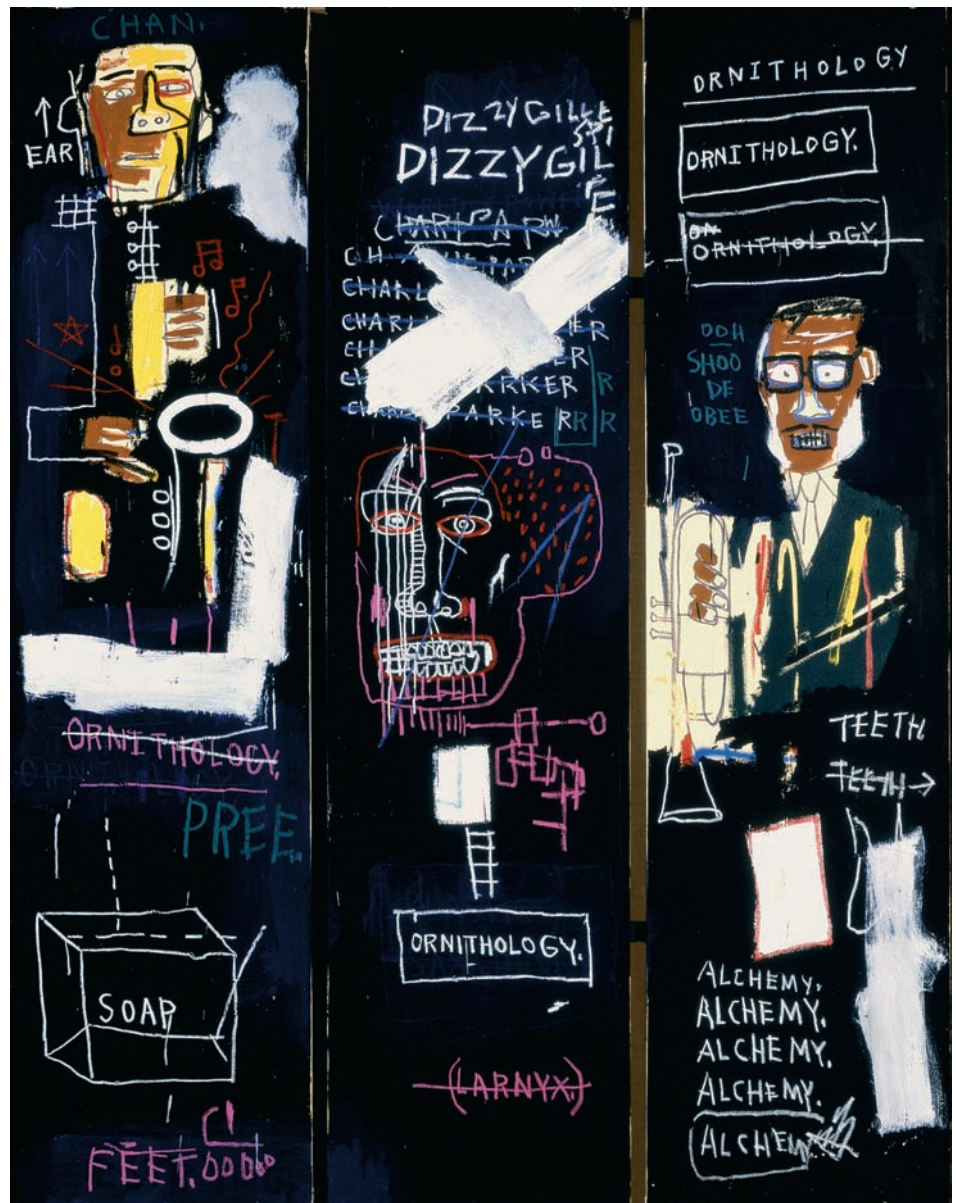 CHAN.
EAR
ORNITHOLOGY.
PREE.
SOAP
FEET.
DIZZYGILLE
SPI
DIZZYGIL
E
CHARL
CHARL
PARKER
R
PARKER
R
R
ORNITHOLOGY.
(LARNYX.)
ORNITHOLOGY
ORNITHOLOGY.
ORNITHOLOGY.
DOH
SHOO
DE
OBEE
TEETH.
TEETH→
ALCHEMY.
ALCHEMY.
ALCHEMY.
ALCHEMY.
ALCHEM